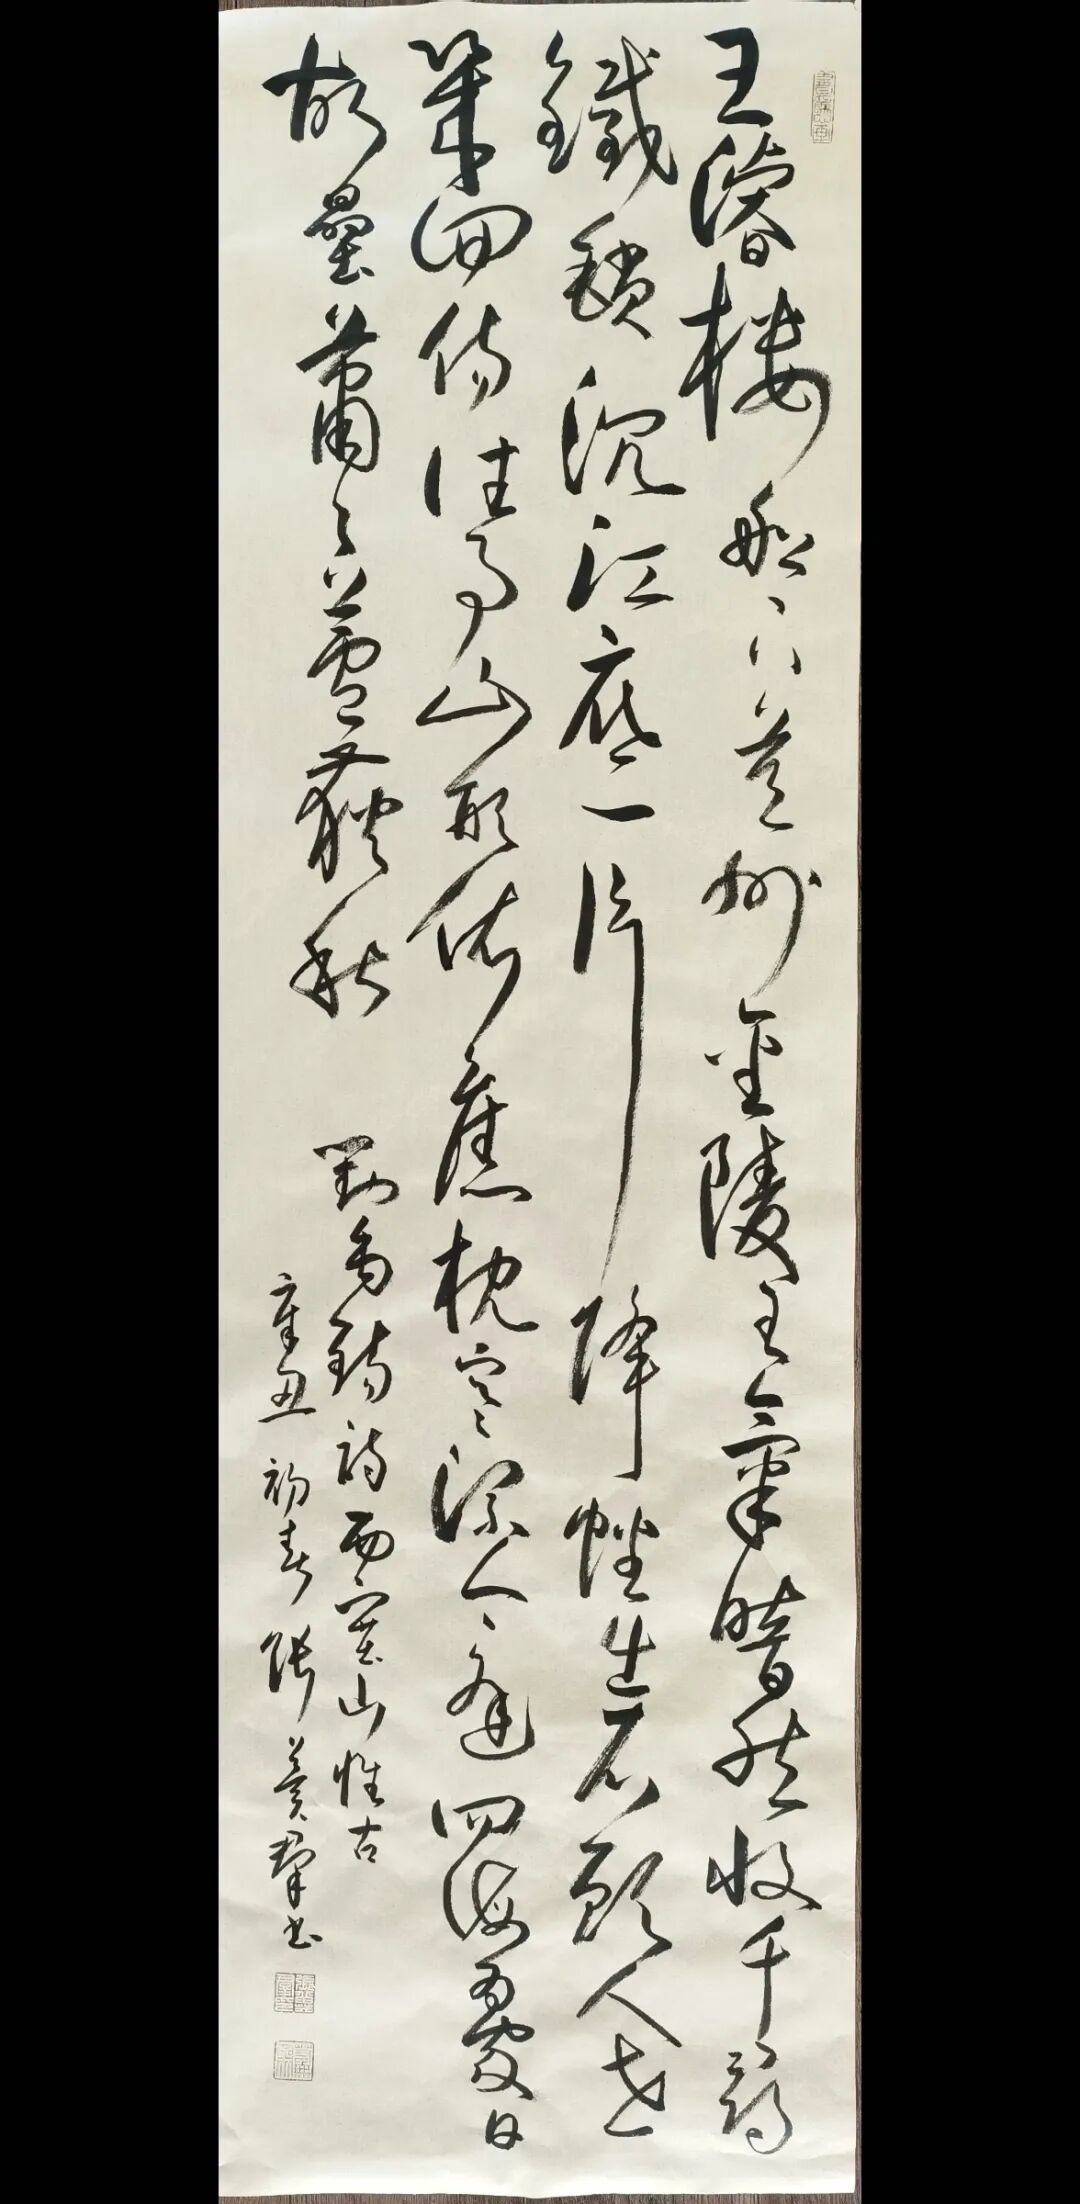 王濬樓船下益州金陵王氣暗然收千尋
鐵鎖沉江底一片降幡出石頭人世
幾回傷往事山形依舊枕寒流今逢四海為家日
故壘蕭〻蘆荻秋
劉禹錫詩西塞山懷古
辛丑初春張群書